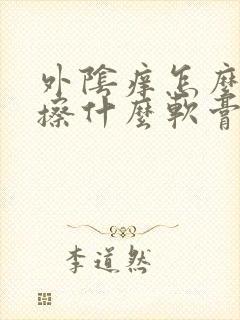 外陰痒怎麼
擦什麼軟膏
李道然